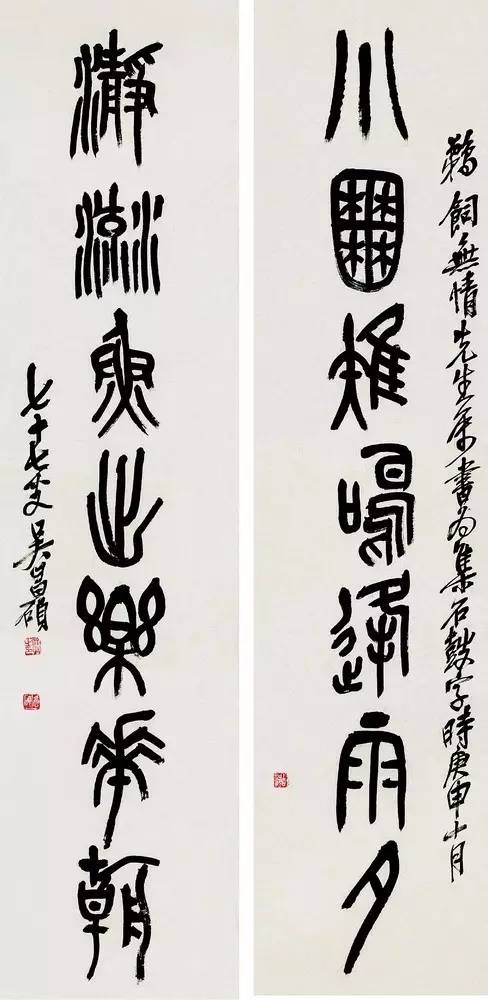 小囿雉鳴逢雨夕
飼無情先生屬書為集石鼓字時庚申十月
瀞流魚出樂華朝
七十七叟吳昌碩